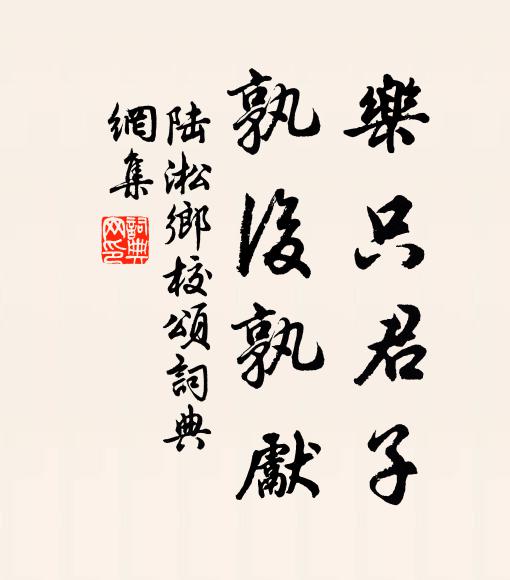 樂只君子
孰後孰獻
陆淞鄉校頌詞典
網集
詞典
网印